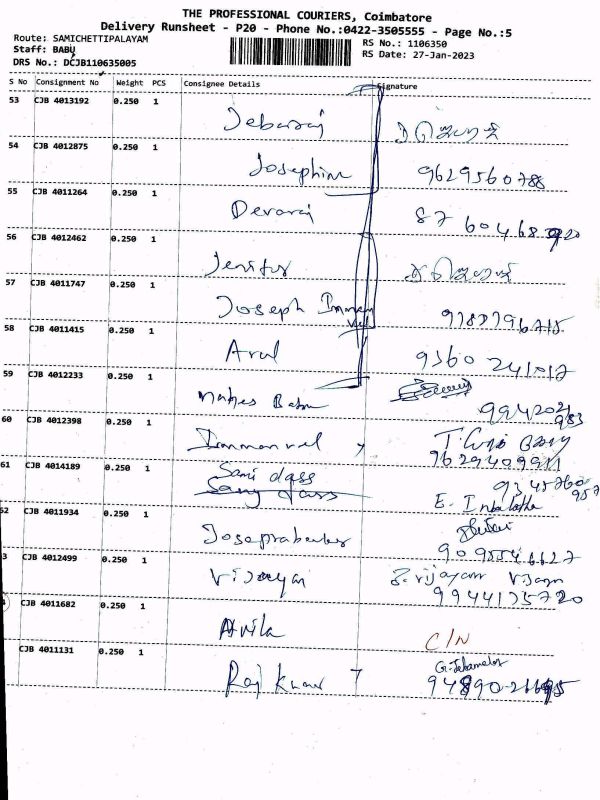 THE PROFESSIONAL COURIERS, Coimbatore
Delivery Runsheet - P20 - Phone No.:0422-3505555 - Page No.:5
Route: SAMICHETTIPALAYAM
RS No.: 1106350
Staff: BABU
RS Date: 27-Jan-2023
DRS No.: DCJB110635005
S No Consignment No Weight PCS Consignee Details Signature
53 CJB 4013192 0.250 1 Jebaraj
54 CJB 4012875 0.250 1 Josephin 9629560788
55 CJB 4011264 0.250 1 Devaraj
56 CJB 4012462 0.250 1
57 CJB 4011747 0.250 1 Joseph Imman
vel
58 CJB 4011415 0.250 1 Arul 9360 241017
59 CJB 4012233 0.250 1 Mahes Babu
60 CJB 4012398 0.250 1 Immanvel
9629409911
61 CJB 4014189 0.250 1 Sami dass
E.
52 CJB 4011934 0.250 1
9095546627
3 CJB 4012499 0.250 1 Vijayan
9944135720
CJB 4011682 0.250 1 C/N
CJB 4011131 0.250 1 Raj Kumar